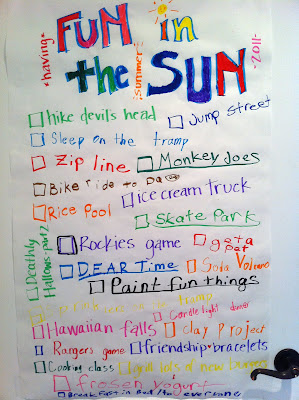 *having*
FUN in
the SUN
*summer*
*2011*
hike devils head
Jump Street
Sleep on the tramp
Zip line
Monkey Joes
Bike ride to DQ
ice cream truck
Rice Pool
Skate Park
Deathly Hallows part 2
Rockies game
get a pet
D.E.A.R Time
Soda Volcano
Paint fun things
Candle light dinner
Hawaiian falls
clay project
Rangers game
friendship bracelets
Cooking class
grid lots of new
frozen yogurt
Breakfast in Bed to everyone